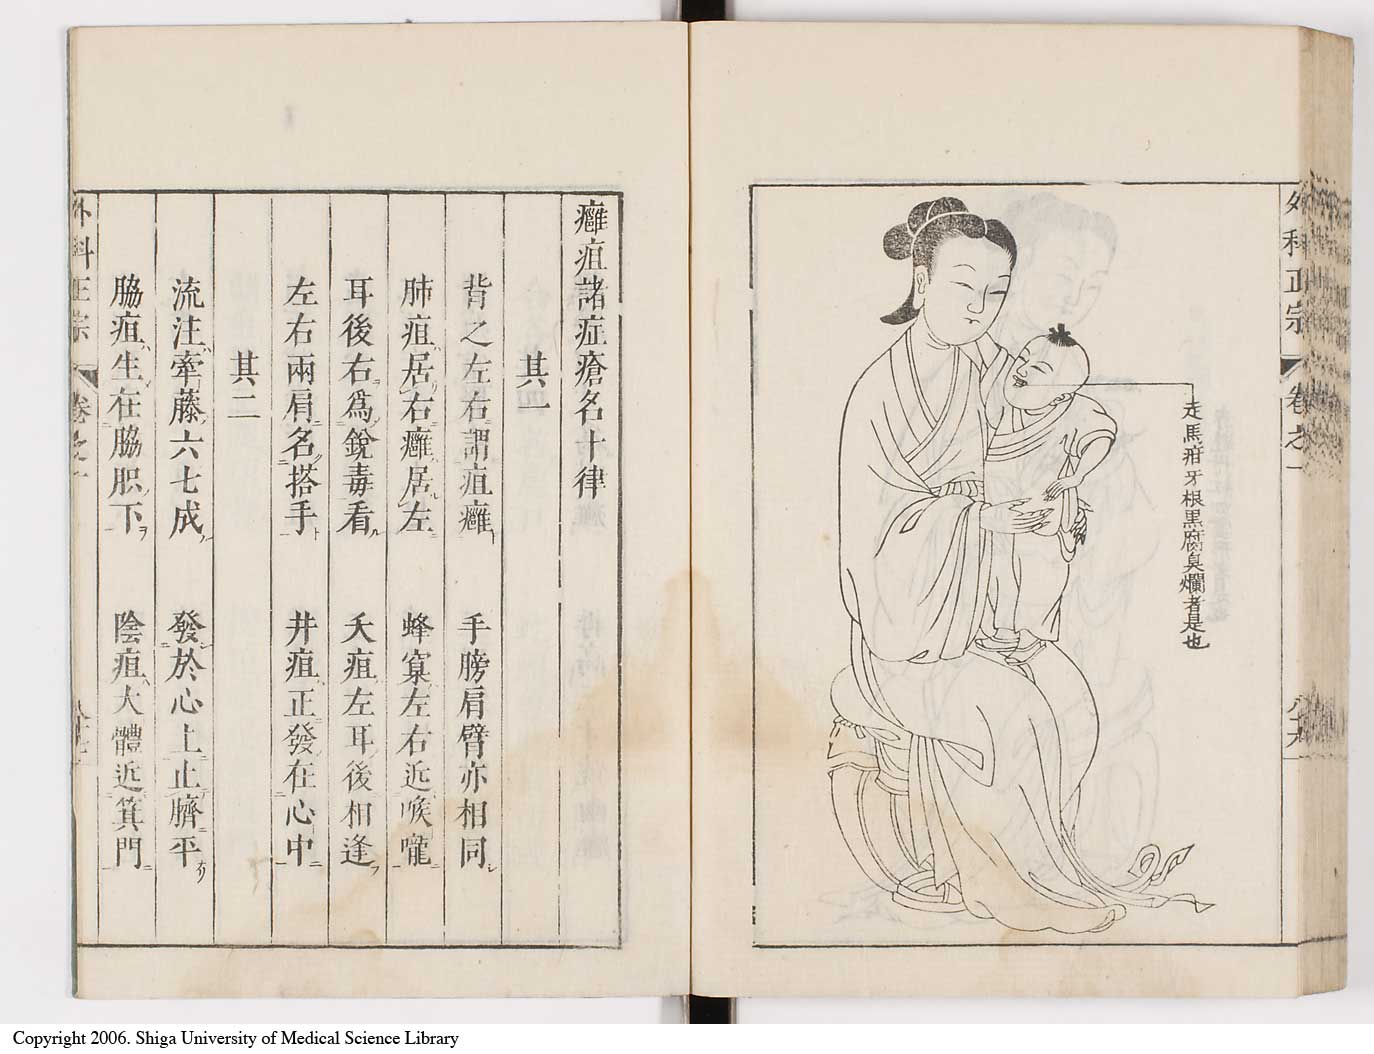 外科正宗 卷之一
八十六
走馬疳牙根黒腐臭爛者是也
癰疽諸症瘡名十律
其一
背之左右謂疽癰 手膀肩臂亦相同
肺疽居右癰居左 蜂窠左右近喉嚨
耳後右爲銳毒看 夭疽左耳後相逢
左右兩肩名搭手 井疽正發在心中
其二
流注牽藤六七成 發於心上止臍平
脇疽生在脇胑下 陰疽大體近箕門
外科正宗 卷之一
Copyright 2006. Shiga University of Medical Science Library